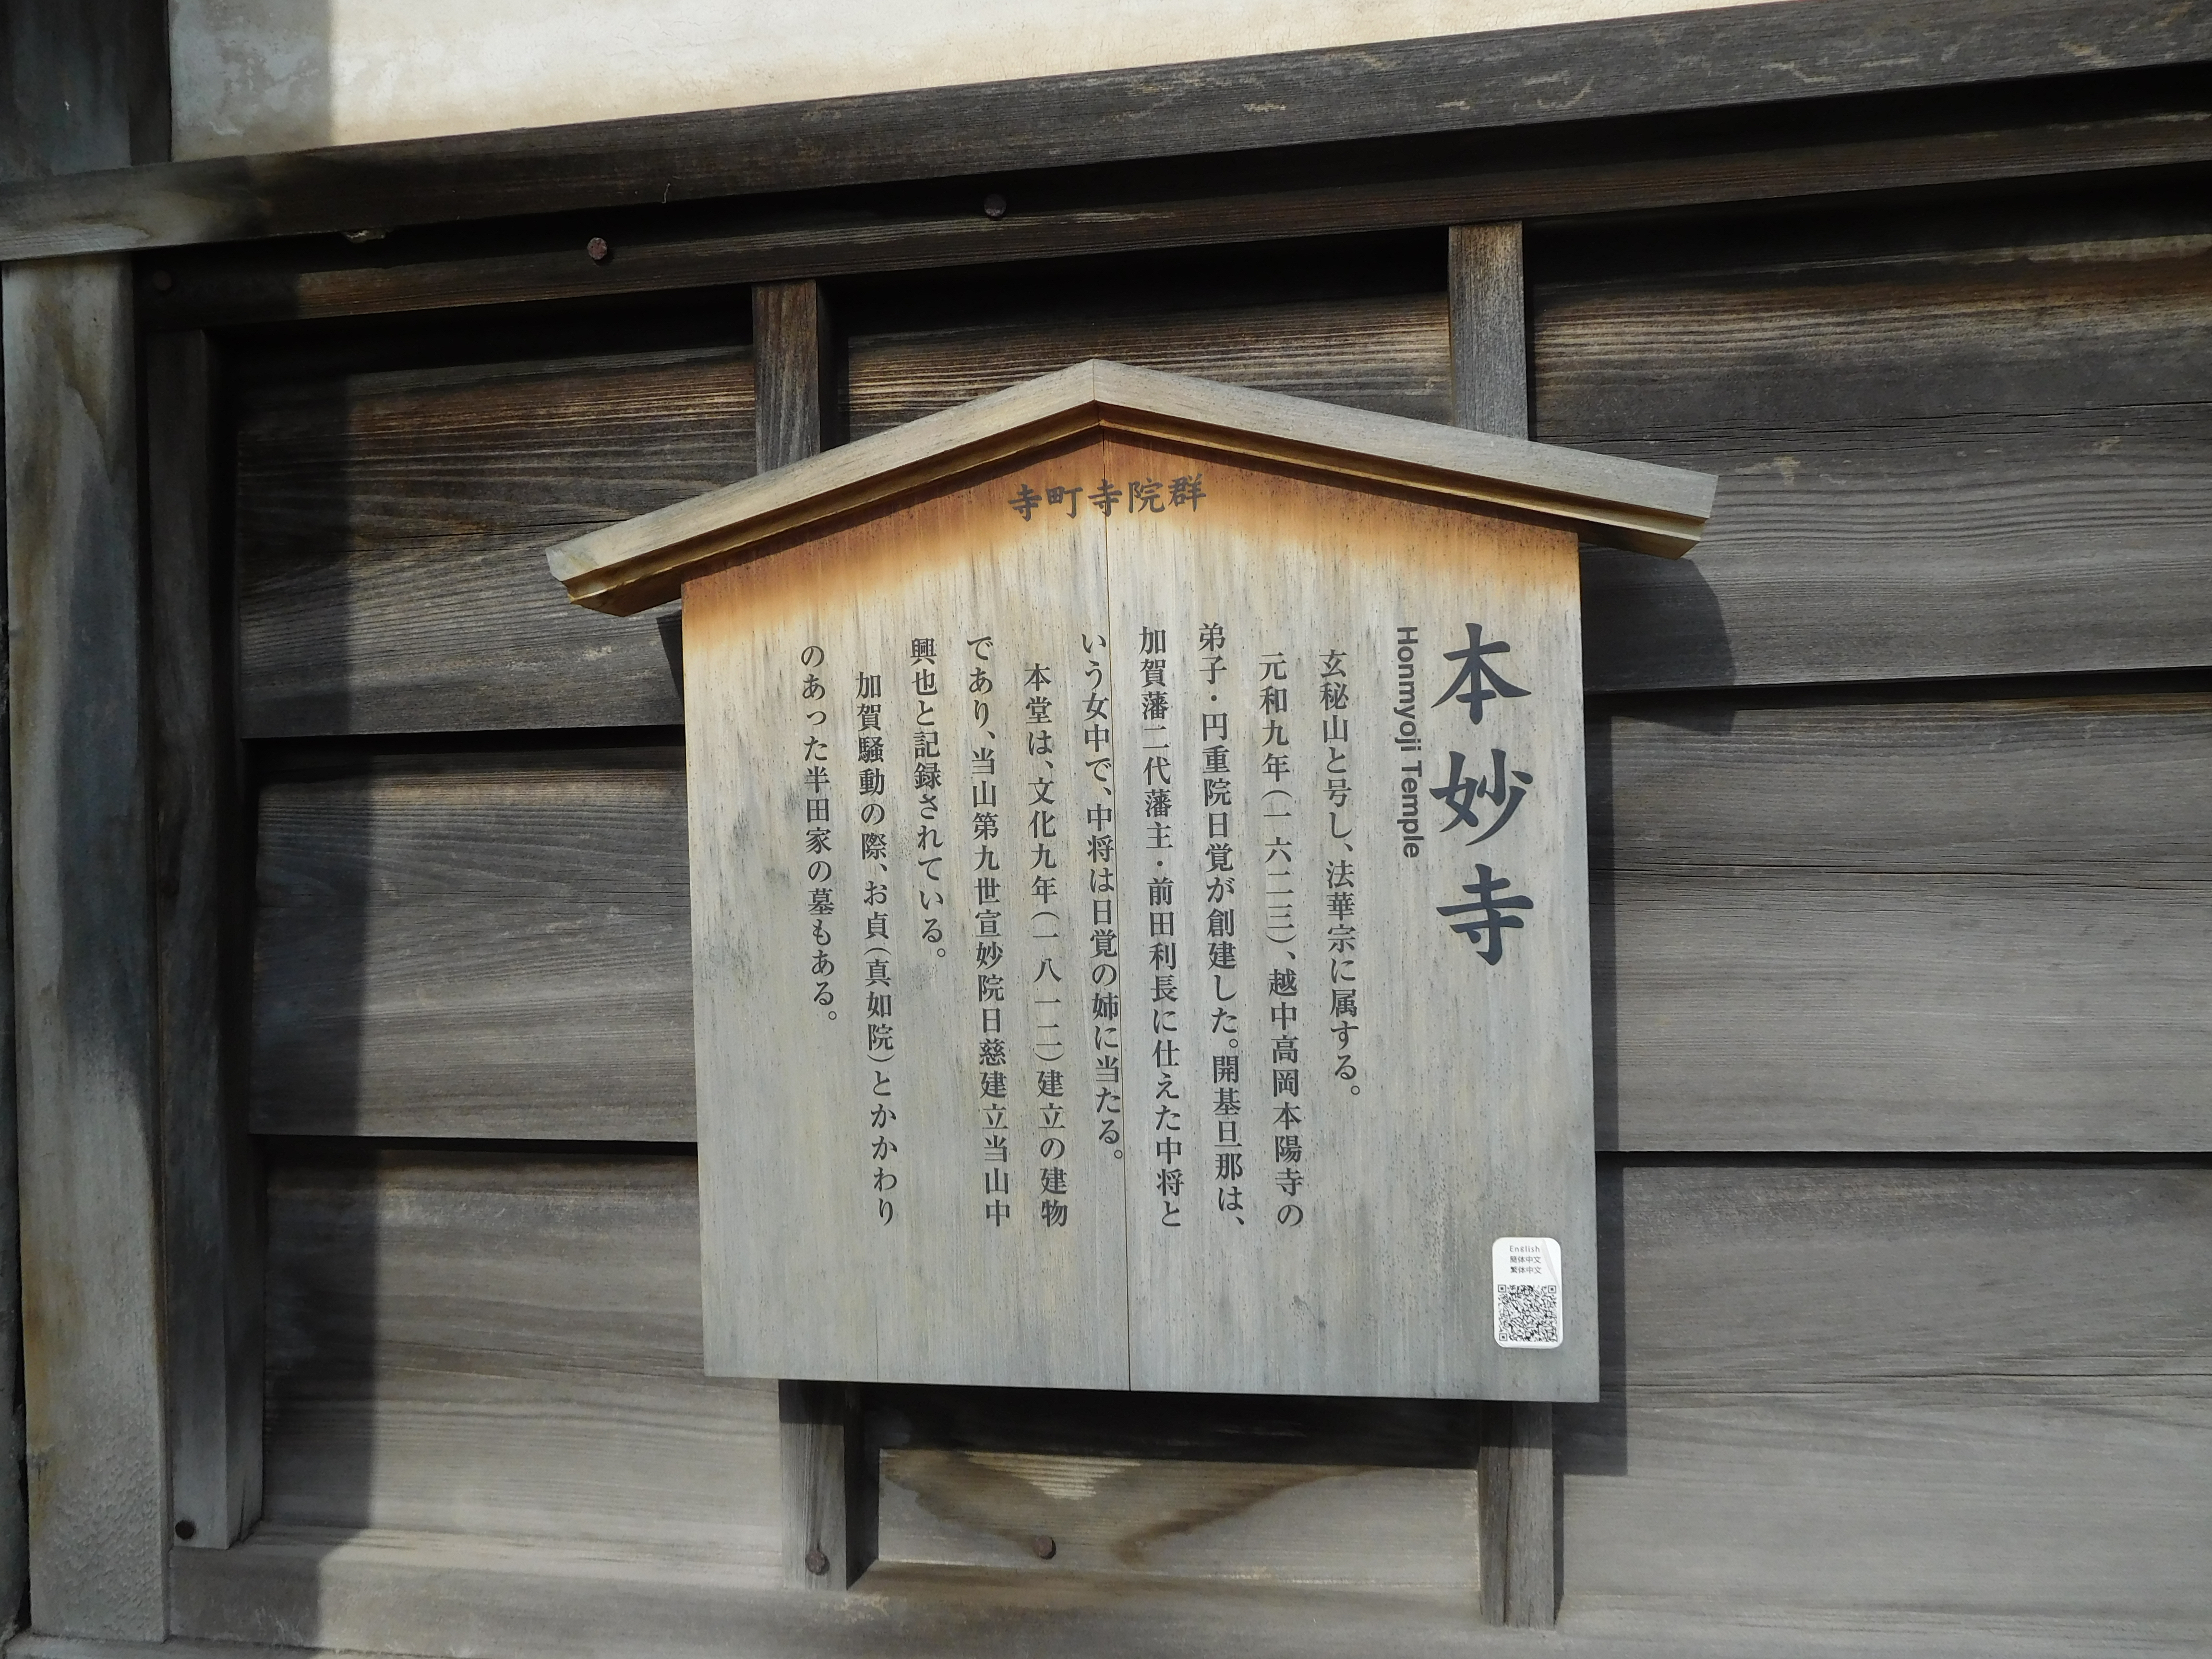 寺町寺院群
本妙寺
Honmyoji Temple
玄秘山と号し、法華宗に属する。
元和九年(一六二三)、越中高岡本陽寺の
弟子・円重院日覚が創建した。開基旦那は、
加賀藩二代藩主・前田利長に仕えた中将と
いう女中で、中将は日覚の姉に当たる。
本堂は、文化九年(一八一二)建立の建物
であり、当山第九世宣妙院日慈建立当山中
興也と記録されている。
加賀騒動の際、お貞(真如院)とかかわり
のあった半田家の墓もある。
English
簡体中文
繁体中文